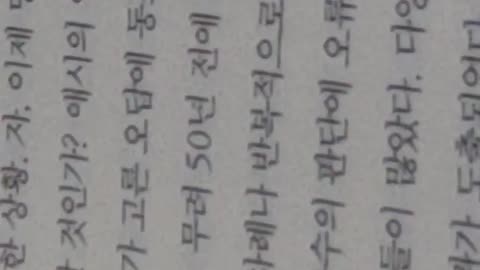 한 상황. 자, 이제
것인가? 예시의
가 고른 오답에
무려 50년 전에
차례나 반복적으로
수의 판단에 오류
들이 많았다. 다양
가 도출되었다